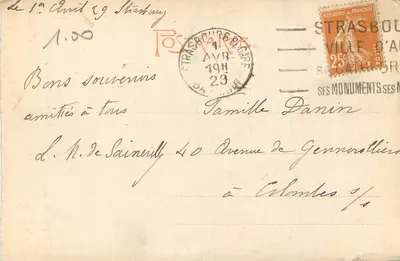 Le 1er Avril 29 Strasbourg
1.80
STRASBOURG GARE
1
AVR
19H
29
BAS-RHIN
STRASBOU
VILLE D'A
SES MONUMENTS, SES M
25
Bons souvenirs
amitiés à tous
Famille Danin
40 Avenue de Gennevilliers
à Colombes s/s